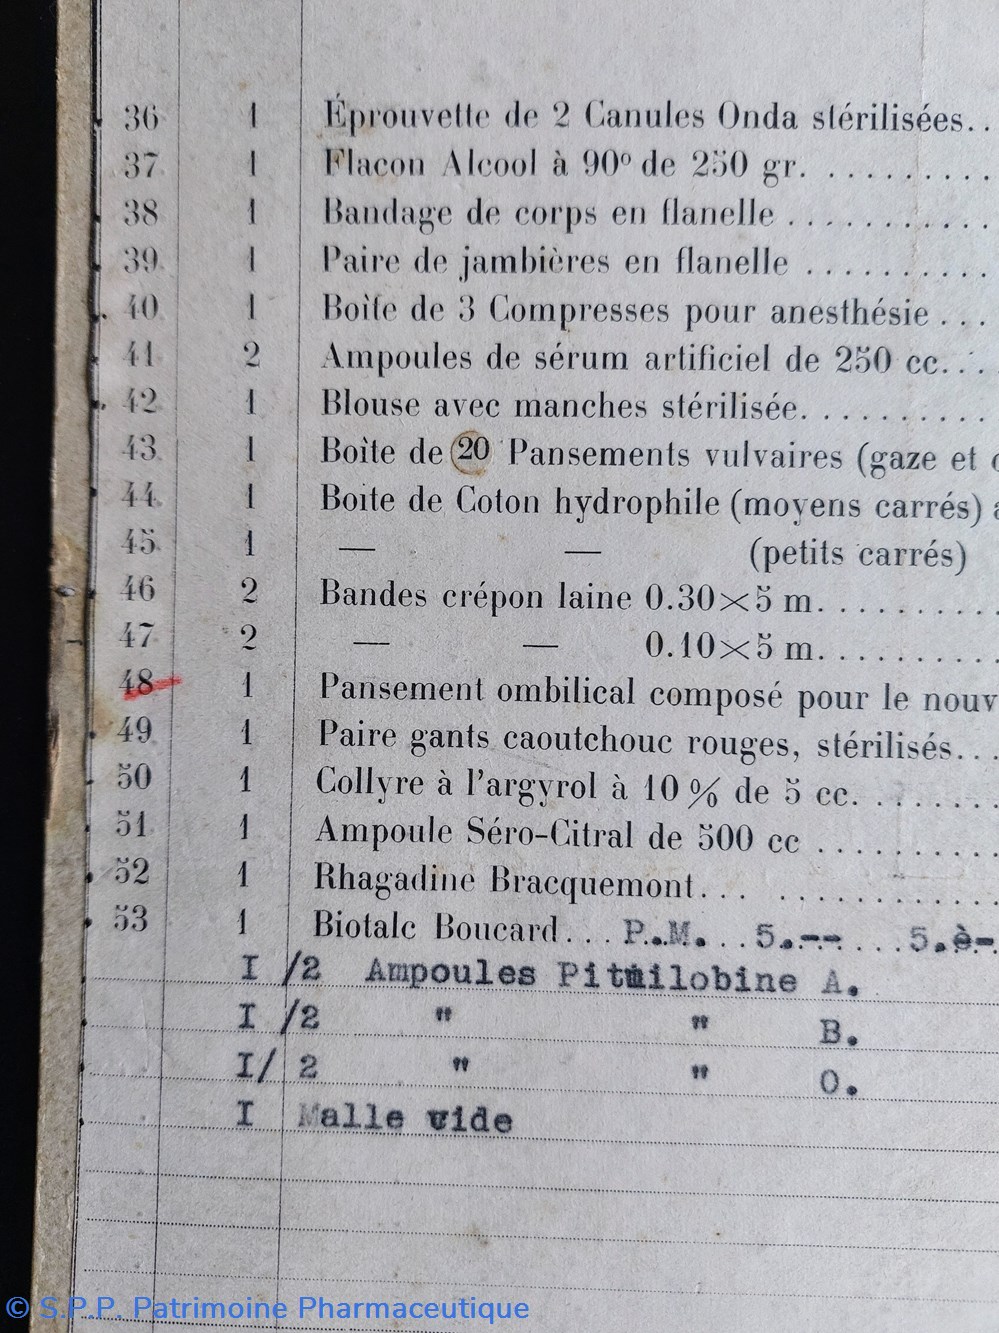 36 1 Éprouvette de 2 Canules Onda stérilisées..
37 1 Flacon Alcool à 90º de 250 gr. ..........
38 1 Bandage de corps en flanelle ............
39 1 Paire de jambières en flanelle ..........
40 1 Boîte de 3 Compresses pour anesthésie ...
41 2 Ampoules de sérum artificiel de 250 cc....
42 1 Blouse avec manches stérilisée..........
43 1 Boîte de 20 Pansements vulvaires (gaze et
44 1 Boîte de Coton hydrophile (moyens carrés)
45 1 — — (petits carrés)
46 2 Bandes crépon laine 0.30×5 m..........
47 2 — — 0.10×5 m..........
48 1 Pansement ombilical composé pour le nouv
49 1 Paire gants caoutchouc rouges, stérilisés...
50 1 Collyre à l'argyrol à 10 % de 5 cc........
51 1 Ampoule Séro-Citral de 500 cc ..........
52 1 Rhagadine Bracquemont... ............
53 1 Biotalc Boucard... P.M. ..5.--...5.
I /2 Ampoules Pituilobine A.
I /2 " " B.
I/ 2 " " O.
I Malle vide
© S.P.P. Patrimoine Pharmaceutique